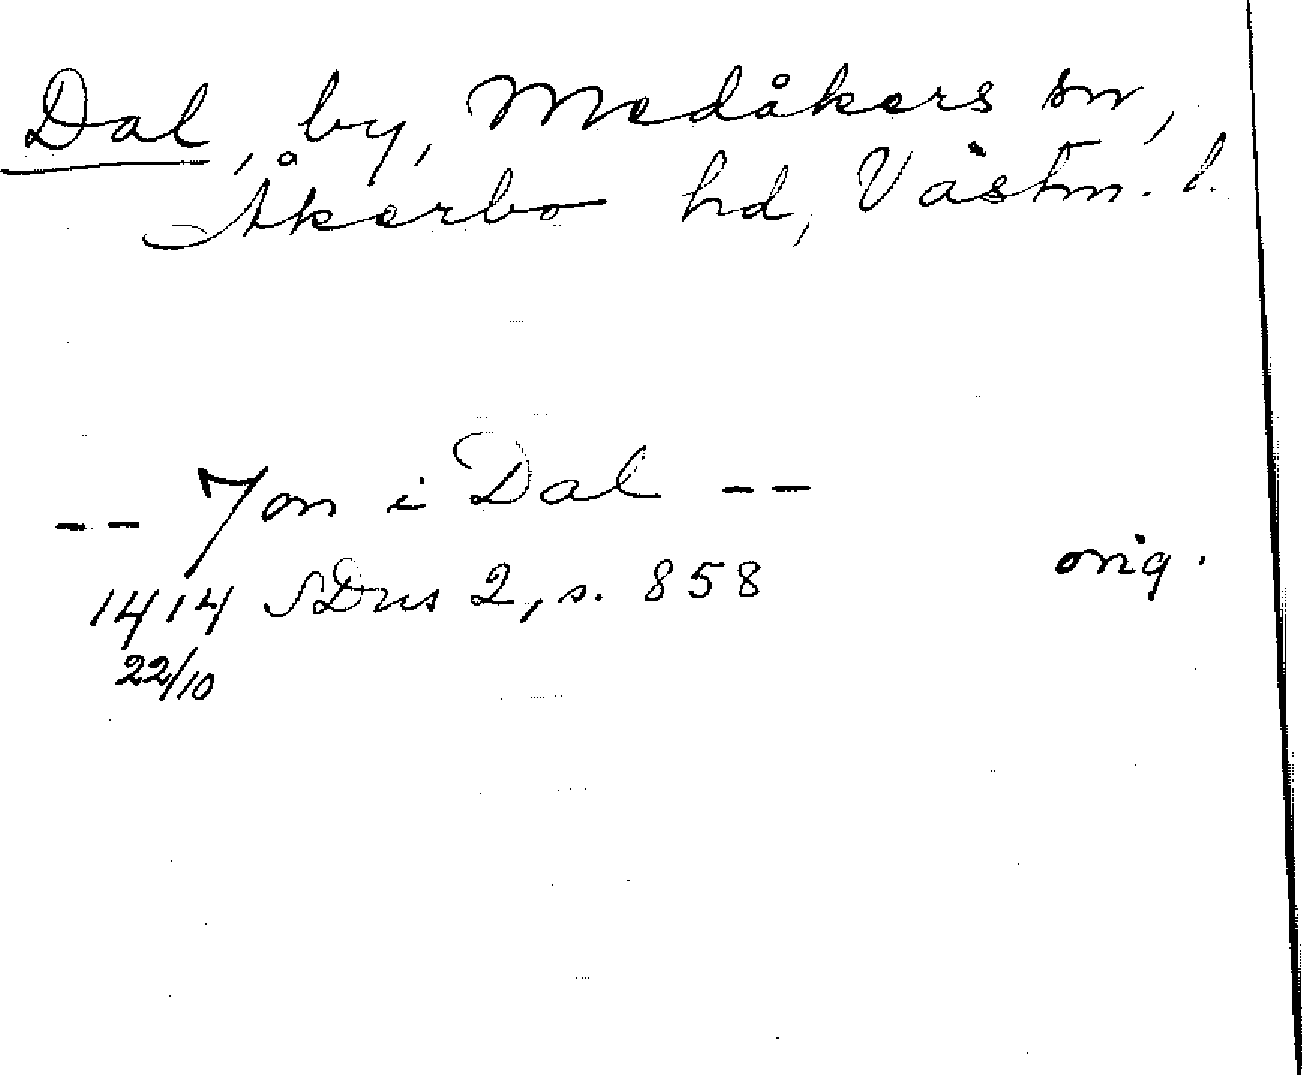 Dal, by, Medåkers sn,
Åkerbo hd, Västm. l.
-- Jon i Dal --
1414 SDns 2, s. 858 orig.
22/10